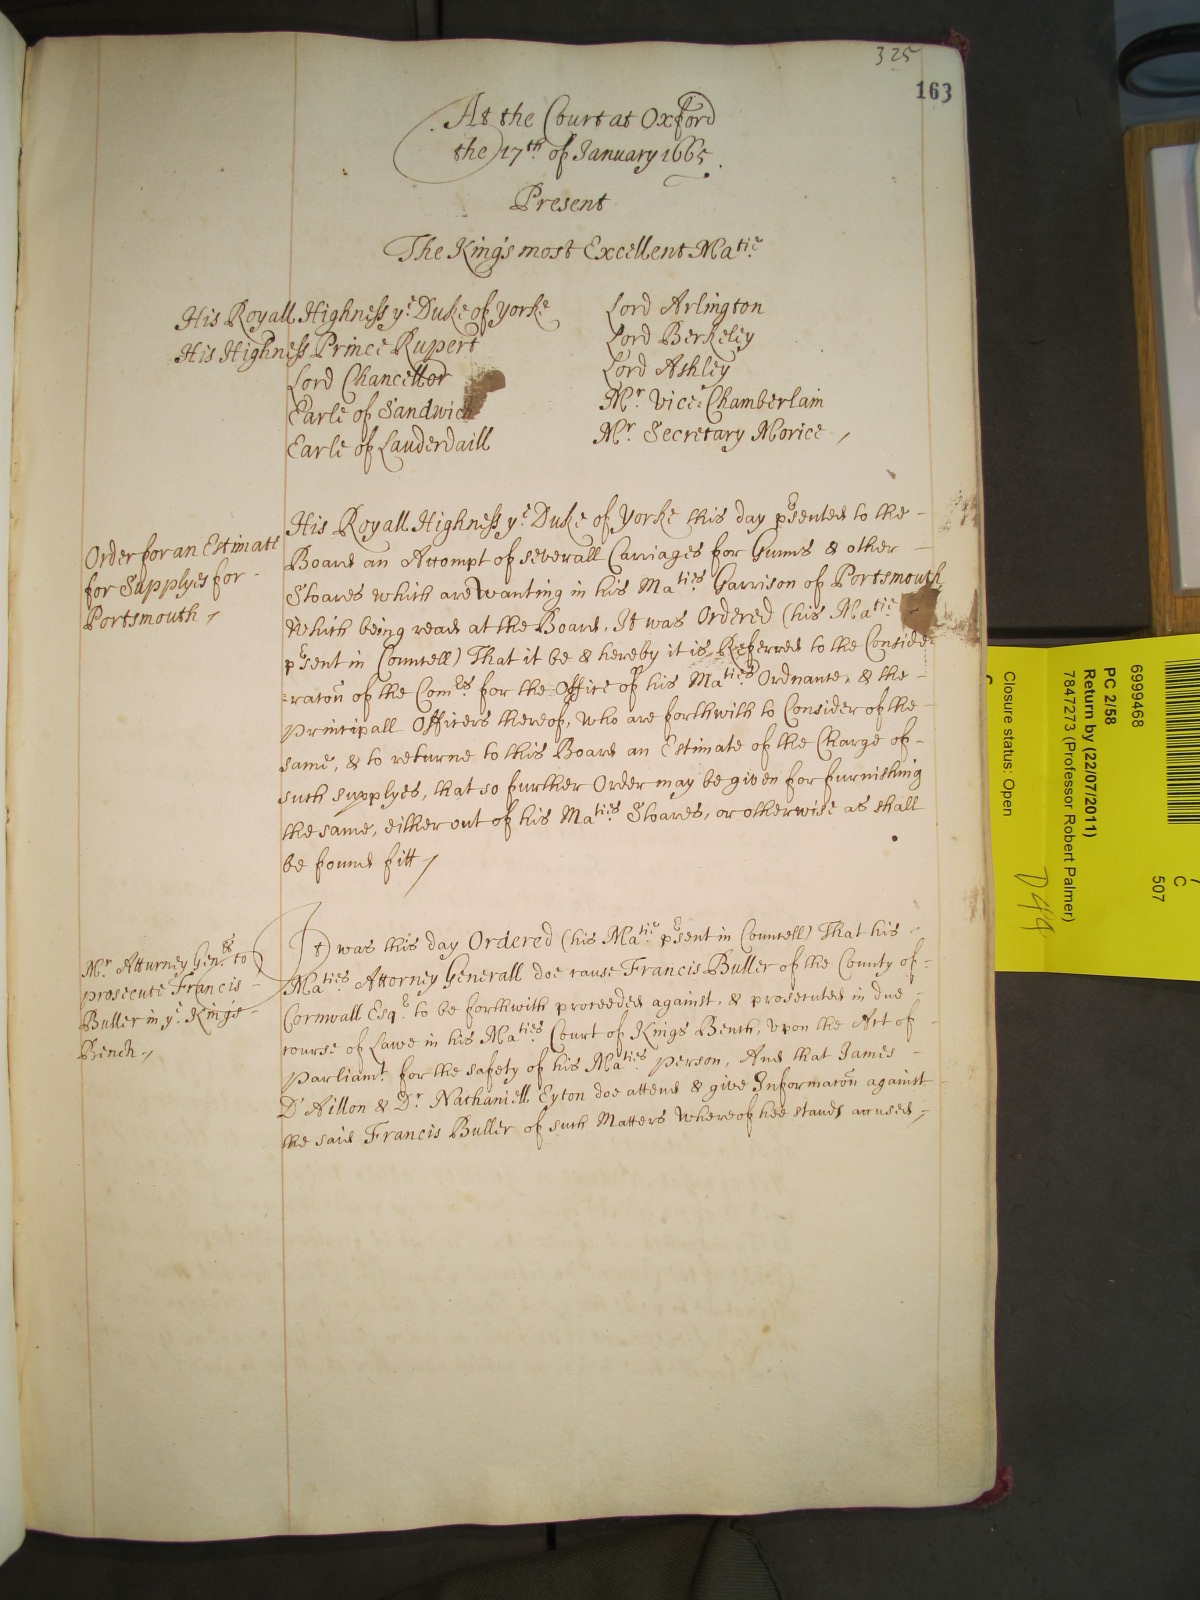 325
163
At the Court at Oxford
the 17th of January 1665.
Present
The Kings most Excellent Matie.
His Royall Highness ye Duke of Yorke
His Highness Prince Rupert
Lord Chancellor
Earle of Sandwich
Earle of Lauderdaill
Lord Arlington
Lord Berkeley
Lord Ashley
Mr. Vice: Chamberlain
Mr. Secretary Morice
Order for an Estimate
for Supplyes for
Portsmouth
His Royall Highness ye Duke of Yorke this day psented to the
Board an Accompt of severall Carriages for Gunns & other
Stoares which are wanting in his Maties Garrison of Portsmouth
Which being read at the Board, It was Ordered (his Matie
psent in Councell) That it be & hereby it is Referred to the Conside
=racon of the Comrs for the Office of his Maties Ordnance, & the
Principall Officers thereof, who are forthwith to Consider of the
same, & to returne to this Board an Estimate of the Charge of
such supplyes, that so further Order may be given for furnishing
the same, either out of his Maties Stoares, or otherwise as shall
be found fitt
Mr. Atturney Genll. to
prosecute Francis
Buller in ye. Kings
Bench
It was this day Ordered (his Matie. psent in Councell) That his
Maties Attorney Generall doe cause Francis Buller of the County of
Cornwall Esqr. to be forthwith proceeded against, & prosecuted in due
course of Lawe in his Maties Court of Kings Bench, upon the Act of
Parliamt. for the safety of his Maties person, And that James
D'Aillon & Dr. Nathaniell Eyton doe attend & give Informacon against
the said Francis Buller of such Matters Whereof hee stands accused
6999468
PC 2/58
Return by (22/07/2011)
7847273 (Professor Robert Palmer)
Closure status: Open
C
507
D44